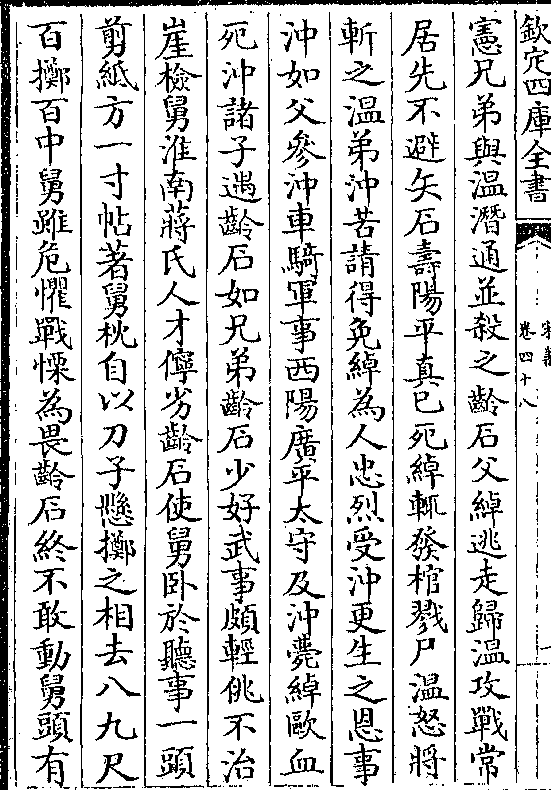 欽定四庫全書
宋書
卷四十八
憲兄弟與溫潛通並殺之齡石父綽逃走歸溫攻戰常
居先不避矢石壽陽平真已死綽輒發棺戮尸溫怒將
斬之溫弟沖苦請得免綽為人忠烈受沖更生之恩事
沖如父參沖車騎軍事西陽廣平太守及沖薨綽歐血
死沖諸子遇齡石如兄弟齡石少好武事頗輕佻不治
崖檢舅淮南蔣氏人才儜劣齡石使舅卧於聽事一頭
剪紙方一寸帖著舅枕自以刀子懸擲之相去八九尺
百擲百中舅雖危懼戰慄為畏齡石終不敢動舅頭有